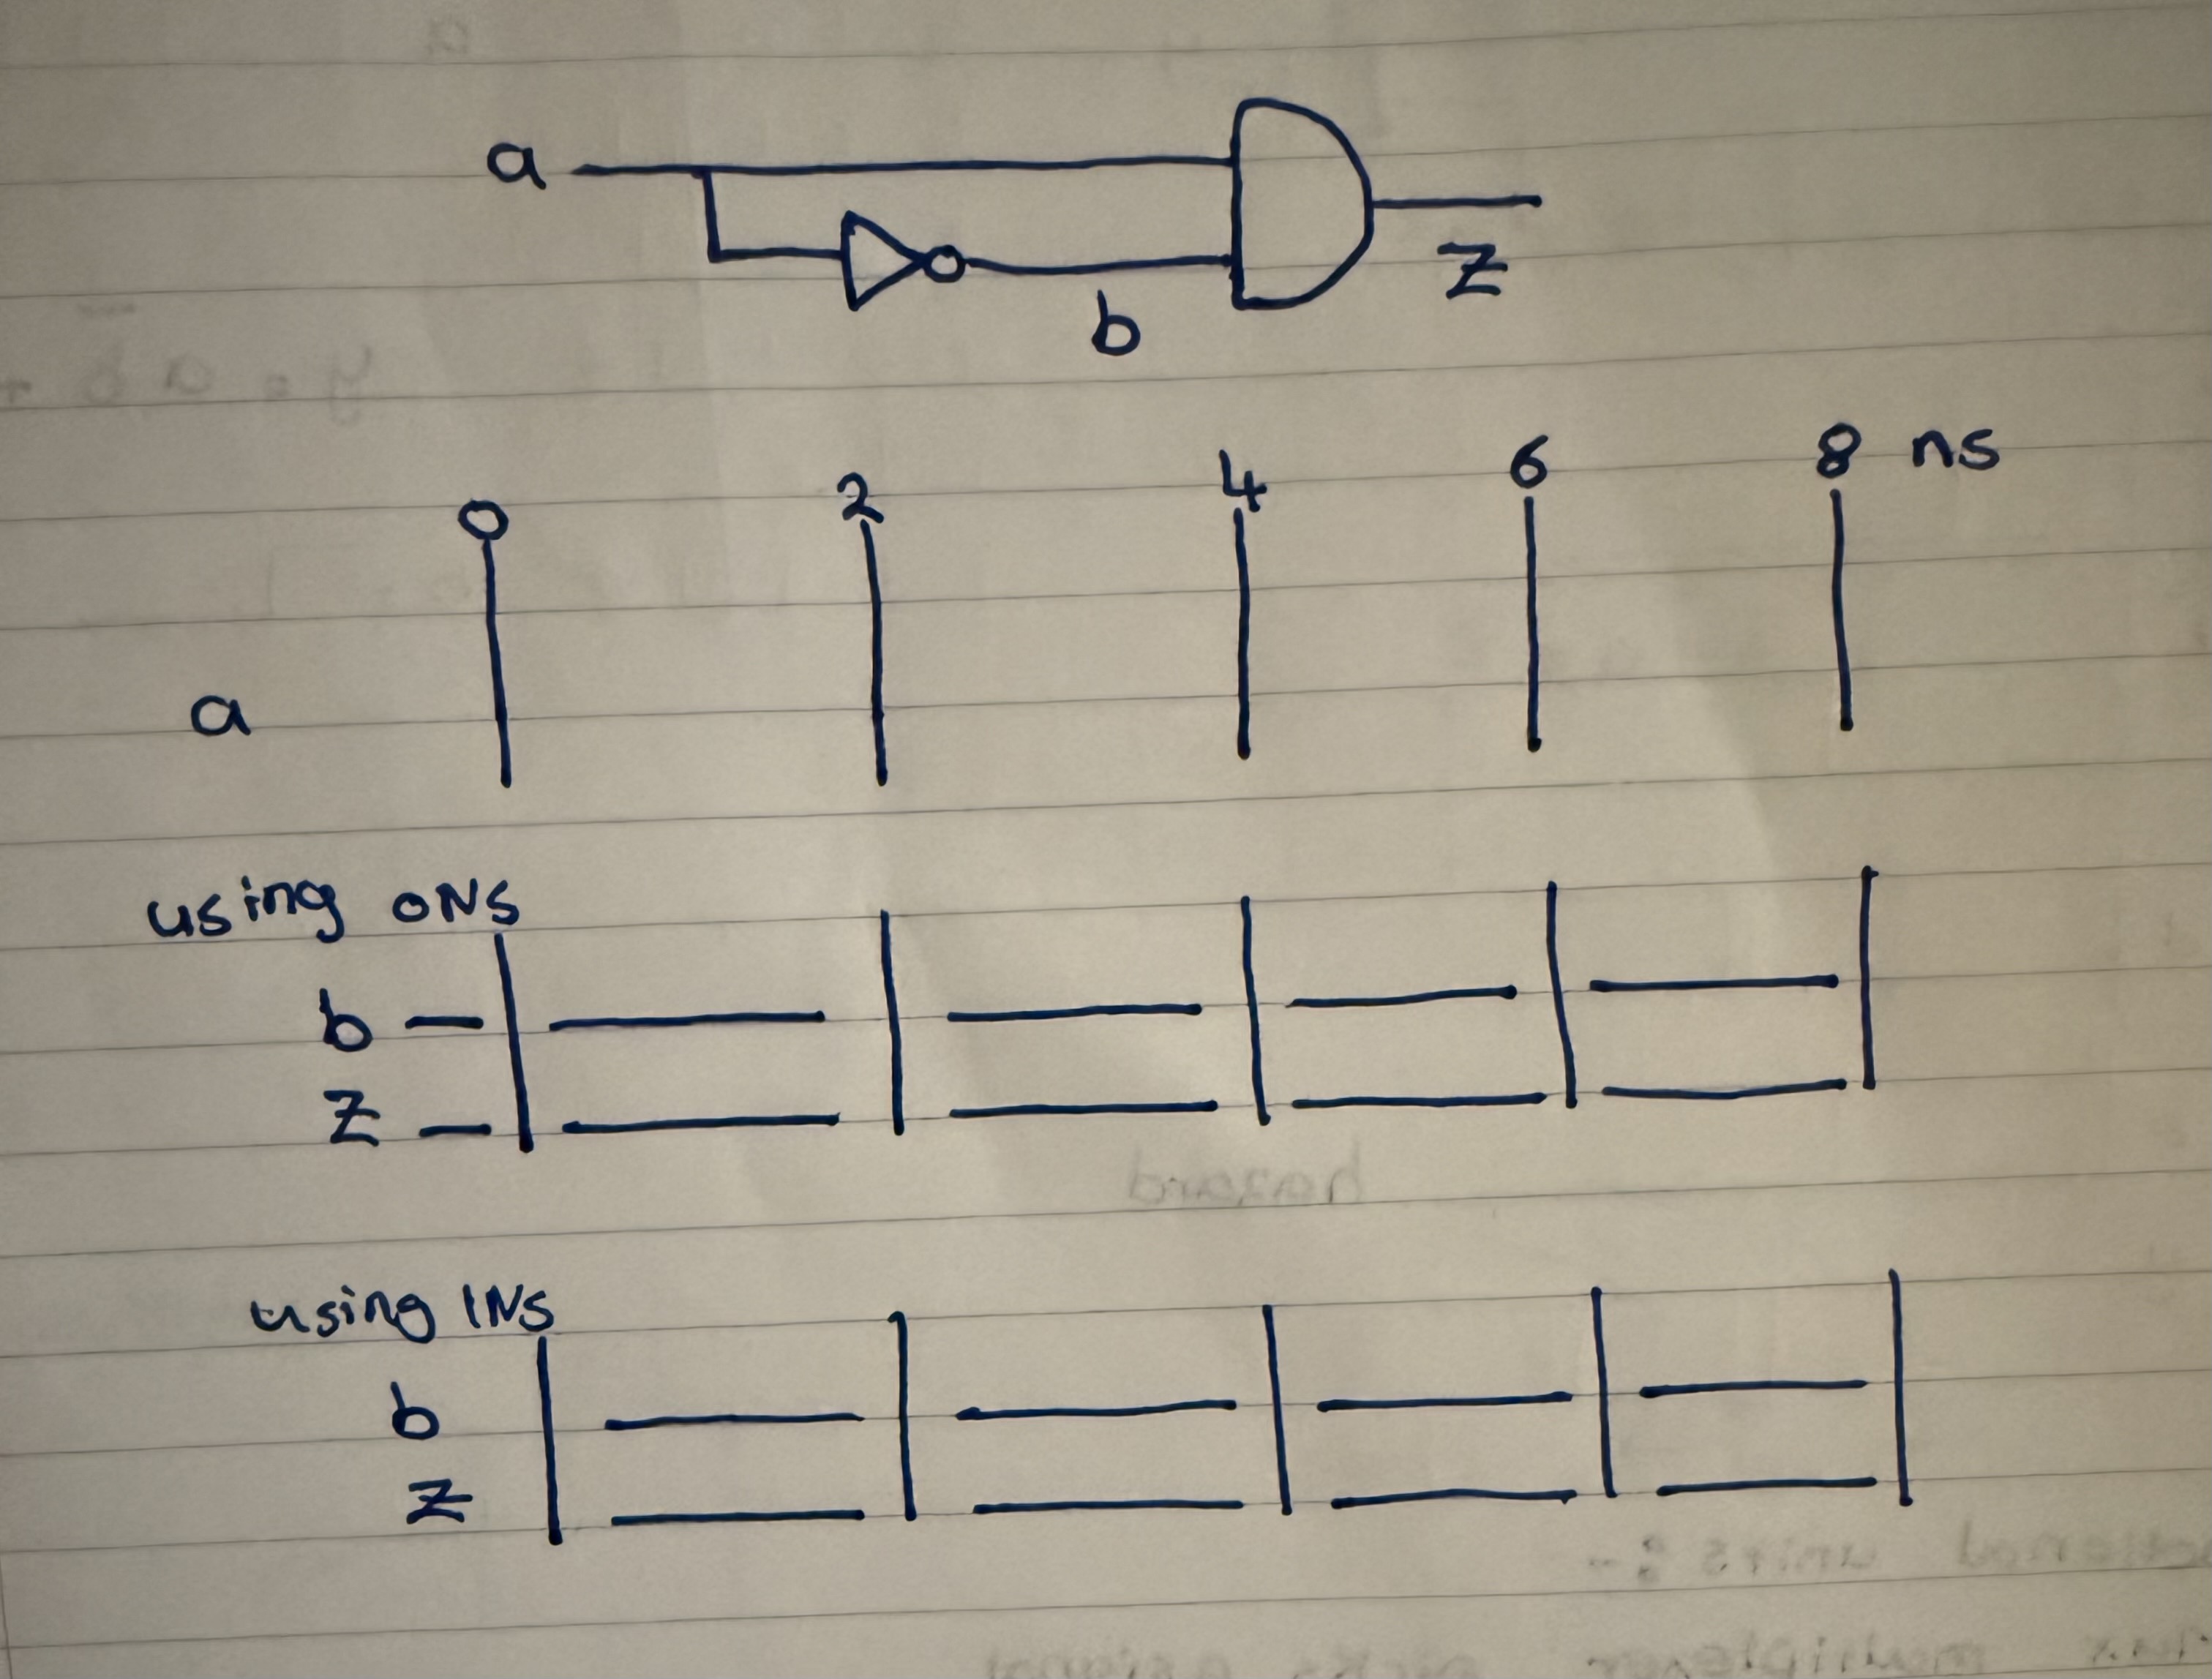 a
b
Z
0 2 4 6 8 ns
a
using oNs
b
Z
using 1Ns
b
Z